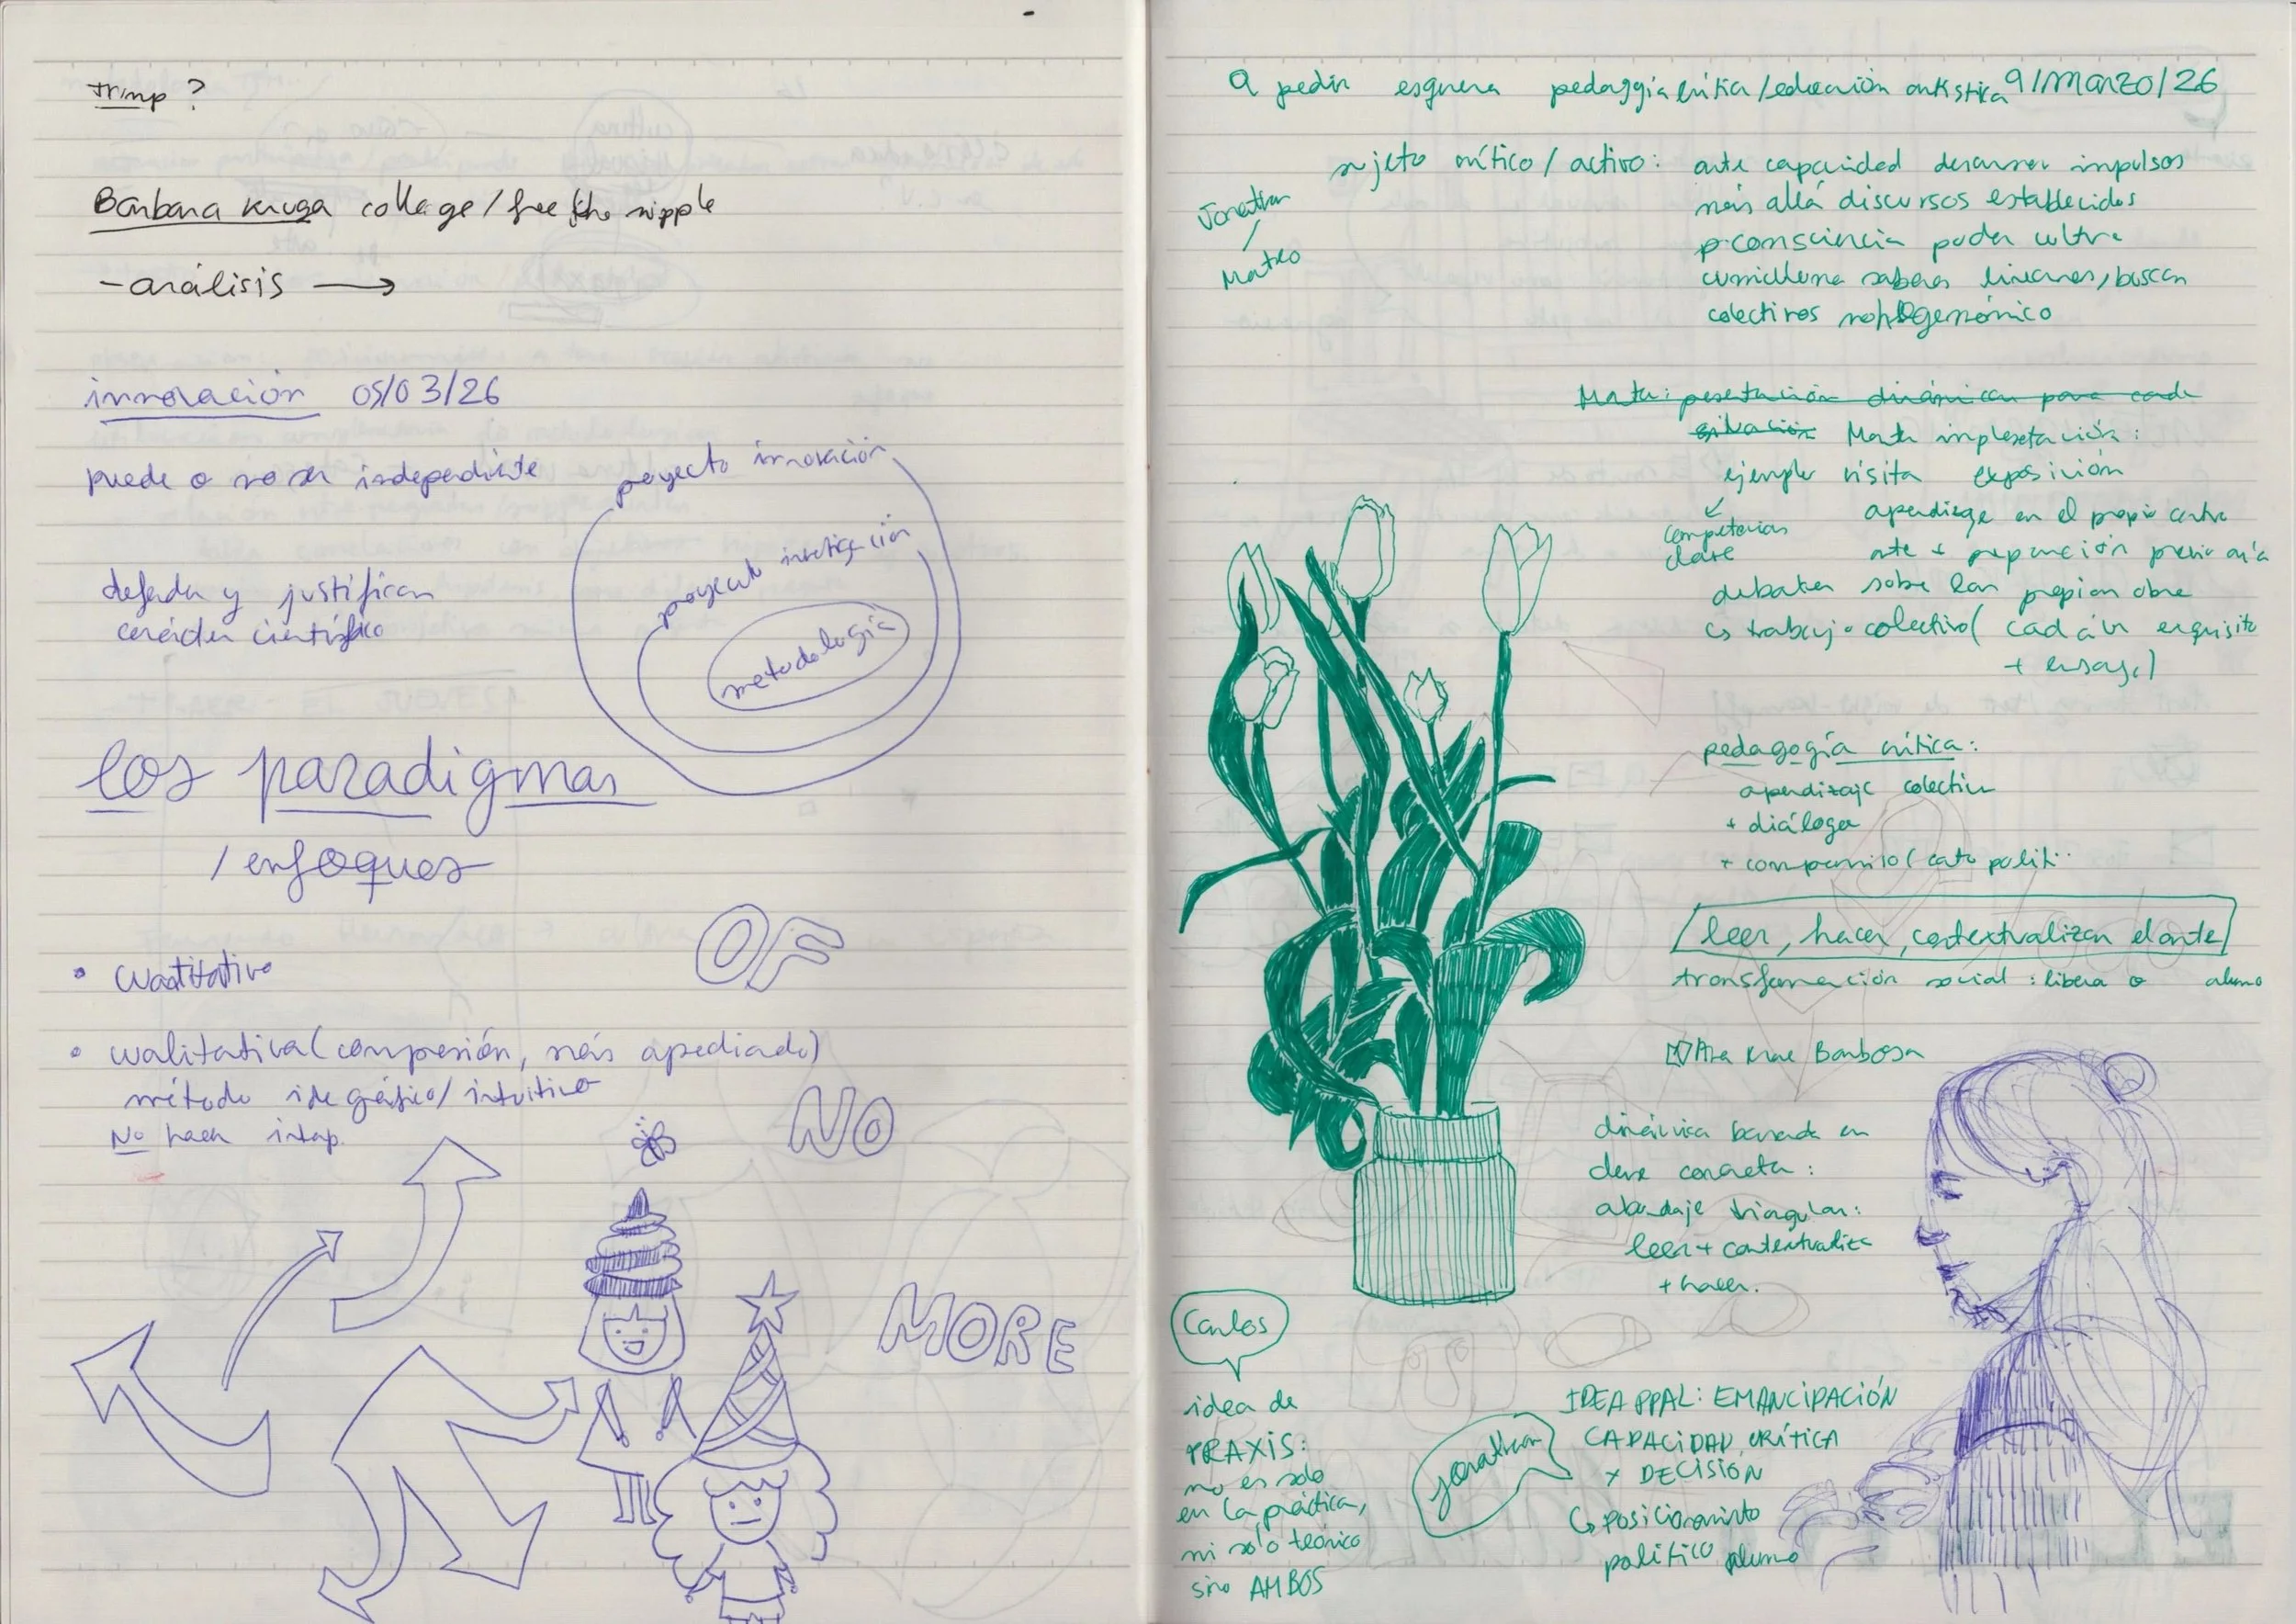 Barbara Kruga collage/free the nipple
-análisis →
innovación 05/03/26
puede o no ser independiente
proyecto innovación
proyecto investigación
metodología
defender y justificar
carácter científico
los paradigmas
/enfoques
OF
• cuantitativo
• cualitativa (compresión, más
método ideográfico/intuitivo
NO hacer
NO
MORE
a pedir pedagogía crítica/educación artística 9/MARZO/26
sujeto crítico/activo: arte capacidad impulsos
más allá discursos establecidos
consciencia poder
Jonathan
/
Mateo
saberes lineares, buscan
colectivos
ejemplo visita exposición
competencias
clave
aprendizaje en el propio centro
arte + preparación previa
debaten sobre las propias obre
↳ trabajo colectivo (cadáver exquisito
+ ensayo)
pedagogía crítica:
aprendizaje colectivo
+ diálogo
leer, hacer, contextualizar el arte
transformación social: libera alumno
Ana Mae Barbosa
dinámica basada en
clase concreta:
abordaje triangular:
leer + contextualizar
+ hacer.
Carlos
idea de
PRAXIS:
no es solo
en la práctica,
ni solo teórico
sino AMBOS
Jonathan
IDEA PPAL: EMANCIPACIÓN
CAPACIDAD CRÍTICA
x DECISIÓN
↳ posicionamiento
político alumno